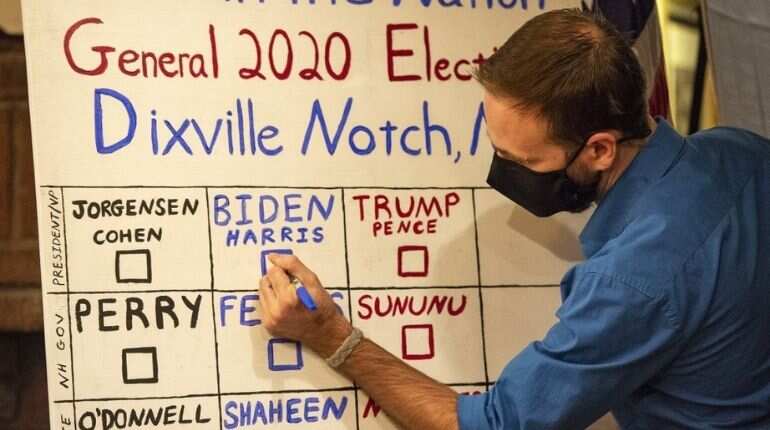 in the Nation
General 2020 Elect
Dixville Notch, N
PRESIDENT/VP
JORGENSEN
COHEN
BIDEN
HARRIS
TRUMP
PENCE
NH GOV.
PERRY
FE
SUNUNU
O'DONNELL
SHAHEEN